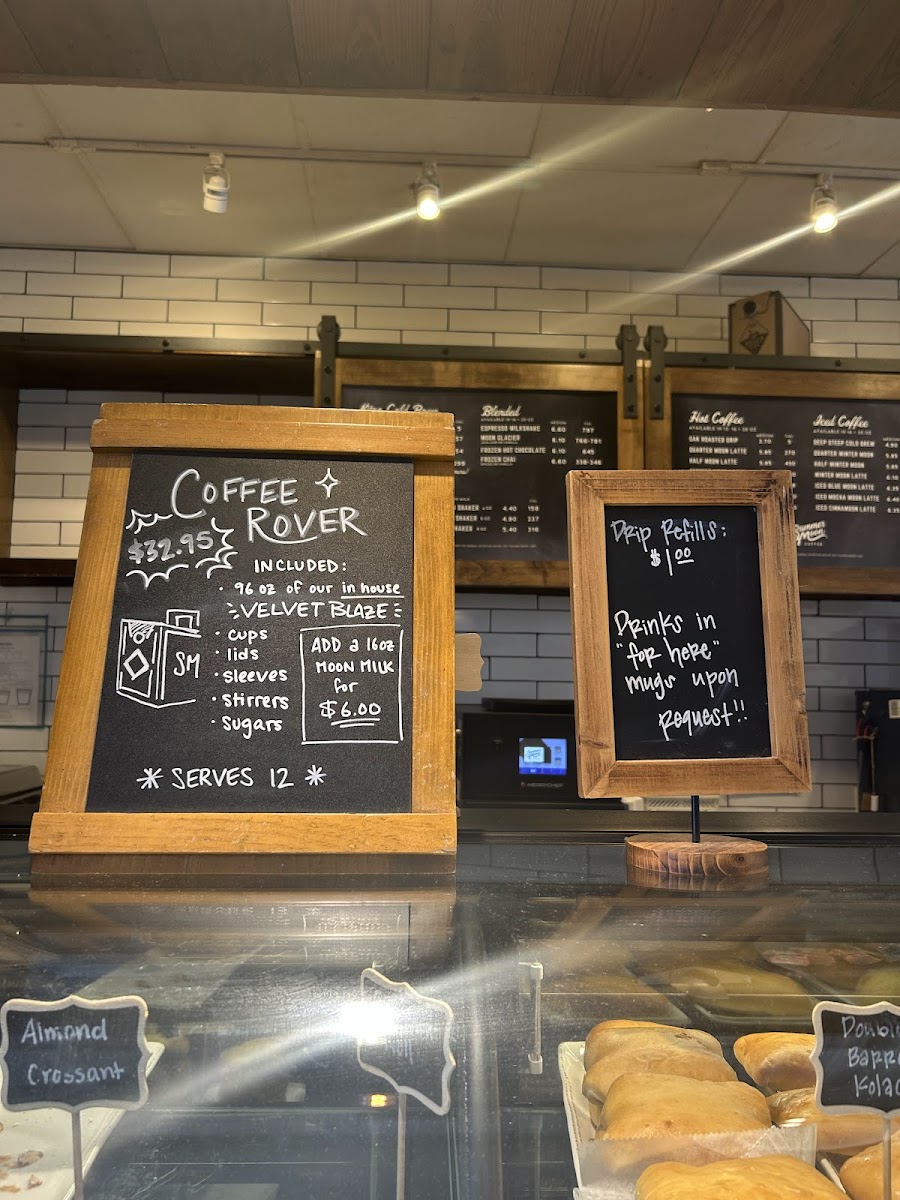 COFFEE
ROVER
$32.95
INCLUDED:
· 96 oz of our in house
VELVET BLAZE
· cups
· lids
· sleeves
· stirrers
· sugars
SM
ADD a 16oz
MOON MILK
for
$6.00
* SERVES 12 *
Drip Refills:
$1.00
Drinks in
"for here"
mugs upon
request!!
Blended
ESPRESSO MILKSHAKE 6.60 797
MOON GLACIER 6.10 766-781
FROZEN HOT CHOCOLATE 6.10 645
FROZEN CHAI 6.60 338-346
4.40 158
4.90 337
5.40 316
Hot Coffee
OAK ROASTED DRIP
QUARTER MOON LATTE
HALF MOON LATTE
Iced Coffee
DEEP STEEP COLD BREW
QUARTER WINTER MOON
HALF WINTER MOON
WINTER MOON
ICED BLUE MOON LATTE
ICED MOCHA MOON LATTE
ICED CINNAMOON LATTE
Summer
Moon
COFFEE
Almond
Crossant